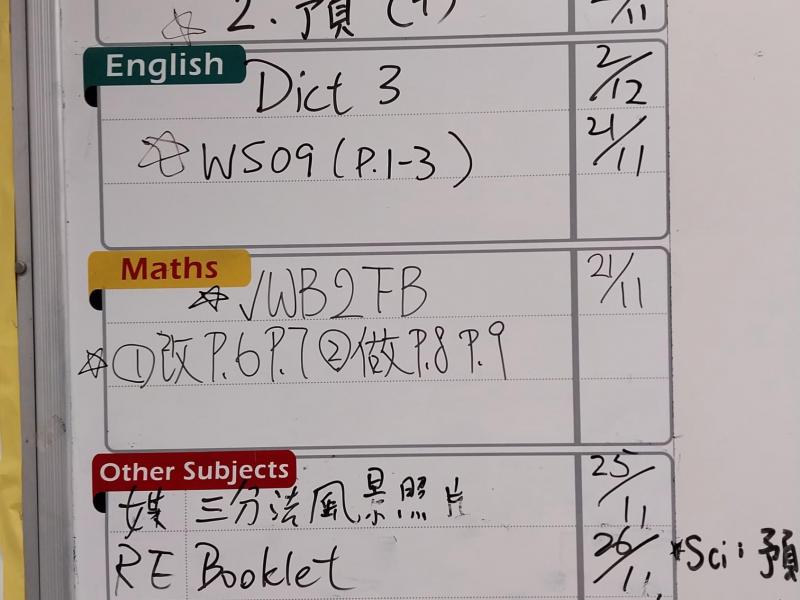 2. 預 (4) /11
English
Dict 3 2/12
WS09 (P.1-3) 21/11
Maths
√WB2TB 21/11
①改P.6P.7②做P.8P.9
Other Subjects
媒 三分法風景照片 25/11
RE Booklet 26/11
*Sci: 預